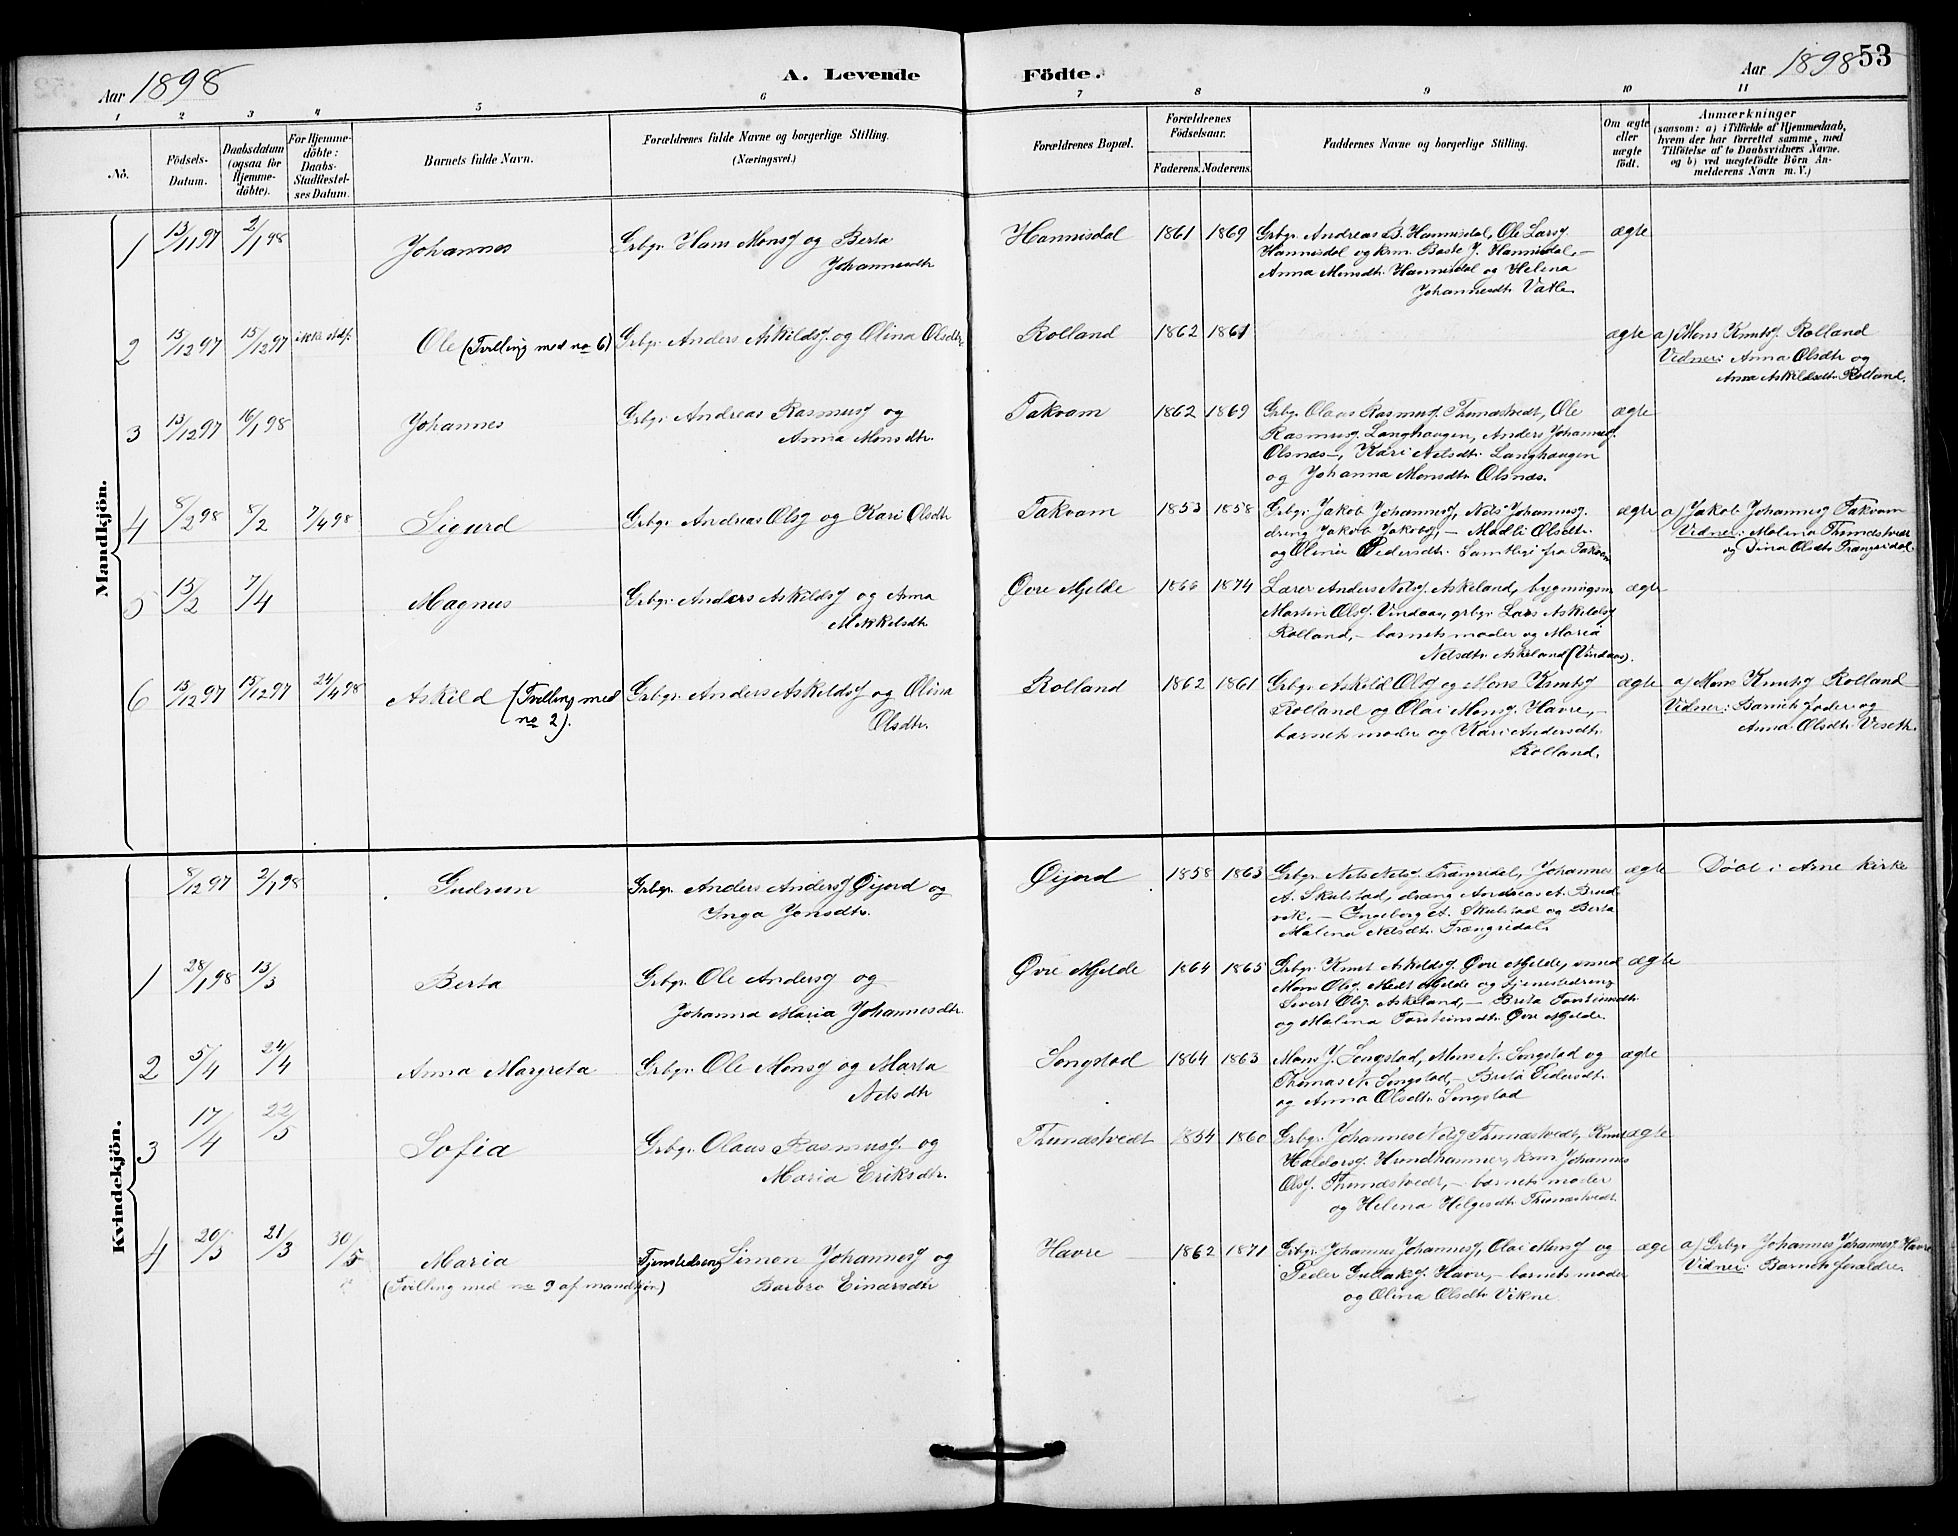 Aar 1898
A. Levende Födte.
Aar 1898
53
1 2 3 4 5 6 7 8 9 10 11
No.
Födsels-Datum.
Daabsdatum (ogsaa för Hjemmedöbte).
For Hjemmedöbte: Daabs-Stadfæstelses Datum.
Barnets fulde Navn.
Forældrenes fulde Navne og borgerlige Stilling.
(Næringsvei.)
Forældrenes Bopæl.
Forældrenes Födselsaar.
Faderens. Moderens.
Faddernes Navne og borgerlige Stilling.
Om ægte eller uægte födt.
Anmærkninger
(saasom: a) i Tilfælde af Hjemmedaab, hvem der har forrettet samme, med Tilföielse af to Daabsvidners Navne. og b) ved uægtefödte Börn Anmelderens Navn m. V.)
Mandkjön.
1 13/11 97 2/1 98 Johannes Grbgr. Hans Monsg og Berta
Johannesdtr
Hannisdal 1861 1869 Grbgr. Andreas B. Hannisdal, Ole Larsg
Hannisdal og krm. Baste J. Hannisdal, –
Anna Monsdtr. Hannisdal og Helena
Johannesdtr. Vatle.
ægte
2 13/12 97 15/12 97 ikke stadf. Ole (Tvilling med no 6) Grbgr. Anders Askildsg og Olina Olsdtr
Rolland 1862 1861 ægte a) Mons Knutsg Rolland
Vidner: Anna Olsdtr og
Anna Askildsdtr. Rolland.
3 13/12 97 16/1 98 Johannes Grbgr. Andreas Rasmusg og
Anna Monsdtr.
Takvam 1862 1869 Grbgr. Olaus Rasmusg. Thunæstvedt, Ole
Rasmusg. Langhaugen, Anders Johannesg.
Olsnæs –, Kari Nelsdtr. Langhaugen
og Johanna Monsdtr. Olsnæs.
ægte
4 8/2 98 8/2 7/4 98 Sigurd Grbgr. Andreas Olsg og Kari Olsdtr
Takvam 1853 1858 Grbgr. Jakob Johannesg, Nels Johannesg.
dreng Jakob Jakobsg, – Madli Olsdtr.
og Olina Pedersdtr. Samtlige fra Takvam
ægte a) Jakob Johannesg Takvam
Vidner: Malena Thunestvedt
og Dina Olsdtr. Trængridal.
5 13/2 7/4 Magnus Grbgr. Anders Askildsg og Anna
Mikkelsdtr.
Øvre Mjelde 1866 1874 Lærer Anders Nelsg. Askeland, bygningsm
Martin Olsg. Vindaas, grbgr. Lars Askildsg
Rolland, – barnets moder og Maria
Nelsdtr. Askeland (Vindaas).
ægte
6 13/12 97 15/12 97 24/4 98 Askild (Tvilling med
no 2).
Grbgr. Anders Askildsg og Olina
Olsdtr.
Rolland 1862 1861 Grbgr. Askild Olsg og Mons Knutsg
Rolland og Olai Monsg. Havre, –
barnets moder og Kari Andersdtr.
Rolland.
ægte a) Mons Knutsg Rolland
Vidner: Barnets fader og
Anna Olsdtr. Veseth.
Kvindekjön.
8/12 97 2/1 98 Gudrun Grbgr. Anders Andersg Øijord og
Inga Jensdtr.
Øijord 1858 1863 Grbgr. Nels Nelsg. Trængridal, Johannes
A. Skulstad, dreng Andreas A. Brudvik, – Ingeborg A. Skulstad og Berta
Malena Nelsdtr. Trængridal.
ægte Døbt i Arne kirke
1 28/1 98 13/3 Berta Grbgr. Ole Andersg og
Johanna Maria Johannesdtr.
Øvre Mjelde 1864 1865 Grbgr. Knut Askildsg. Øvre Mjelde,
Mons Olsg. Mjelde og tjenestedreng
Sivert Olsg. Askeland, – Brita Torsteinsdtr.
og Malena Torsteinsdtr. Øvre Mjelde.
ægte
2 5/4 24/4 Anna Margreta Grbgr. Ole Monsg og Marta
Nelsdtr
Songstad 1864 1863 Mons J. Songstad, Mons N. Songstad og
Thomas N. Songstad, – Brita Pedersdtr.
og Anna Olsdtr. Songstad
ægte
3 17/4 22/5 Sofia Grbgr. Olaus Rasmusg. og
Maria Eriksdtr.
Thunæstvedt 1854 1860 Grbgr. Johannes Nelsg Thunæstvedt, Knut
Haldorsg. Hundhammer, krm. Johannes
Olsg. Thunæstvedt, – barnets moder
og Helena Helgesdtr. Thunæstvedt
ægte
4 20/3 21/3 30/5 Maria
(Tvilling med no 9 af mandkjøn)
Tjenstedreng Simon Johannesg og
Barbro Einarsdtr
Havre 1862 1871 Grbgr. Johannes Johannesg, Olai Monsg og
Peder Gullaksg. Havre, – barnets moder
og Olina Olsdtr. Vikne.
ægte a) Grbgr. Johannes Johannesg. Havre
Vidner: Barnets forældre.